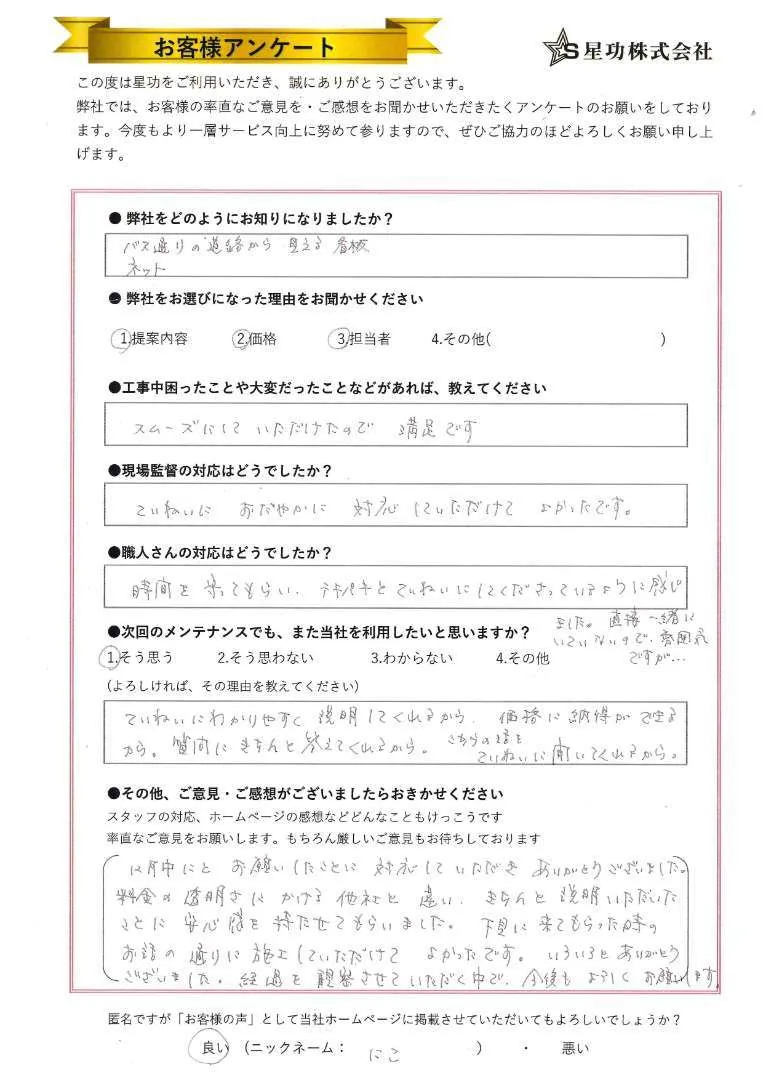 お客様アンケート
S星功株式会社
この度は星功をご利用いただき、誠にありがとうございます。
弊社では、お客様の率直なご意見を・ご感想をお聞かせいただきたくアンケートのお願いをしており
ます。今度もより一層サービス向上に努めて参りますので、ぜひご協力のほどよろしくお願い申し上
げます。
● 弊社をどのようにお知りになりましたか？
バス通りの道路から 見える 看板
ネット
● 弊社をお選びになった理由をお聞かせください
1.提案内容 2.価格 3.担当者 4.その他( )
●工事中困ったことや大変だったことなどがあれば、教えてください
スムーズにして いただけたので 満足です
●現場監督の対応はどうでしたか？
ていねいに おだやかに 対応していただけて よかったです。
●職人さんの対応はどうでしたか？
時間を 守ってもらい、テキパキとていねいにしてくださっているように感じ
ました。直接 一緒に
いていないので、雰囲気
ですが…
●次回のメンテナンスでも、また当社を利用したいと思いますか？
1.そう思う 2.そう思わない 3.わからない 4.その他
（よろしければ、その理由を教えてください）
ていねいにわかりやすく 説明してくれるから、価格に納得ができる
から。質問にきちんと答えてくれるから。こちらの話を
ていねいに聞いてくれるから。
●その他、ご意見・ご感想がございましたらおきかせください
スタッフの対応、ホームページの感想などどんなこともけっこうです
率直なご意見をお願いします。もちろん厳しいご意見もお待ちしております
12月中にと お願いしたことに 対応して いただき ありがとうございました。
料金の透明さに かける 他社と 違い、きちんと 説明いただいた
ことに 安心感を 持たせてもらいました。下見に来てもらった時の
お話の通りに施工していただけて よかったです。いろいろとありがとう
ございました。経過を 観察させていただく中で、今後も よろしくお願いします
匿名ですが「お客様の声」として当社ホームページに掲載させていただいてもよろしいでしょうか？
良い （ニックネーム： にこ ） ・ 悪い